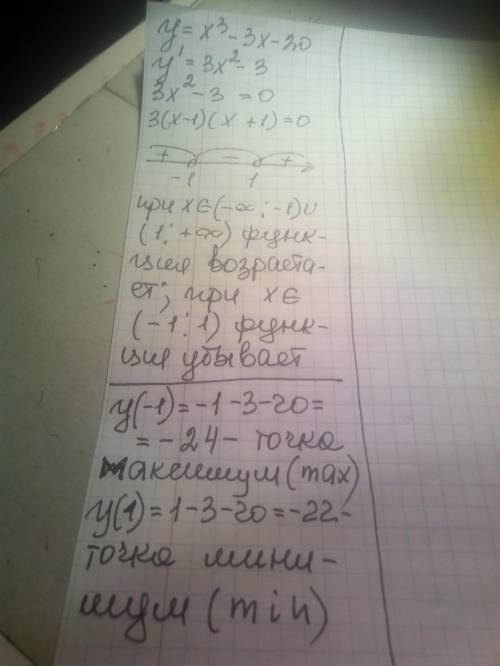 y = x³ - 3x - 20
y' = 3x² - 3
3x² - 3 = 0
3(x-1)(x+1) = 0
+ - +
-1 1
при x∈(-∞; -1)∪
(1; +∞) функ-
ция возраста-
ет; при x∈
(-1; 1) функ-
ция убывает
y(-1) = -1 -3 -20 =
= -24 - точка
максимум (max)
y(1) = 1-3-20 = -22 -
точка мини-
мум (min)